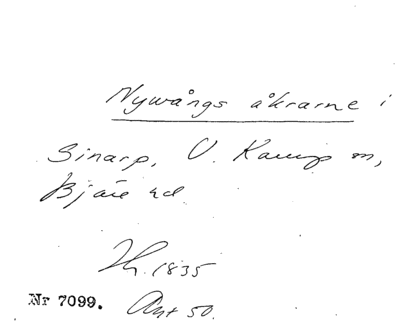 Nywångs åkrarne i
Sinarp, V. Karup sn,
Bjäre hd
1835
Nr 7099. Ant 50.